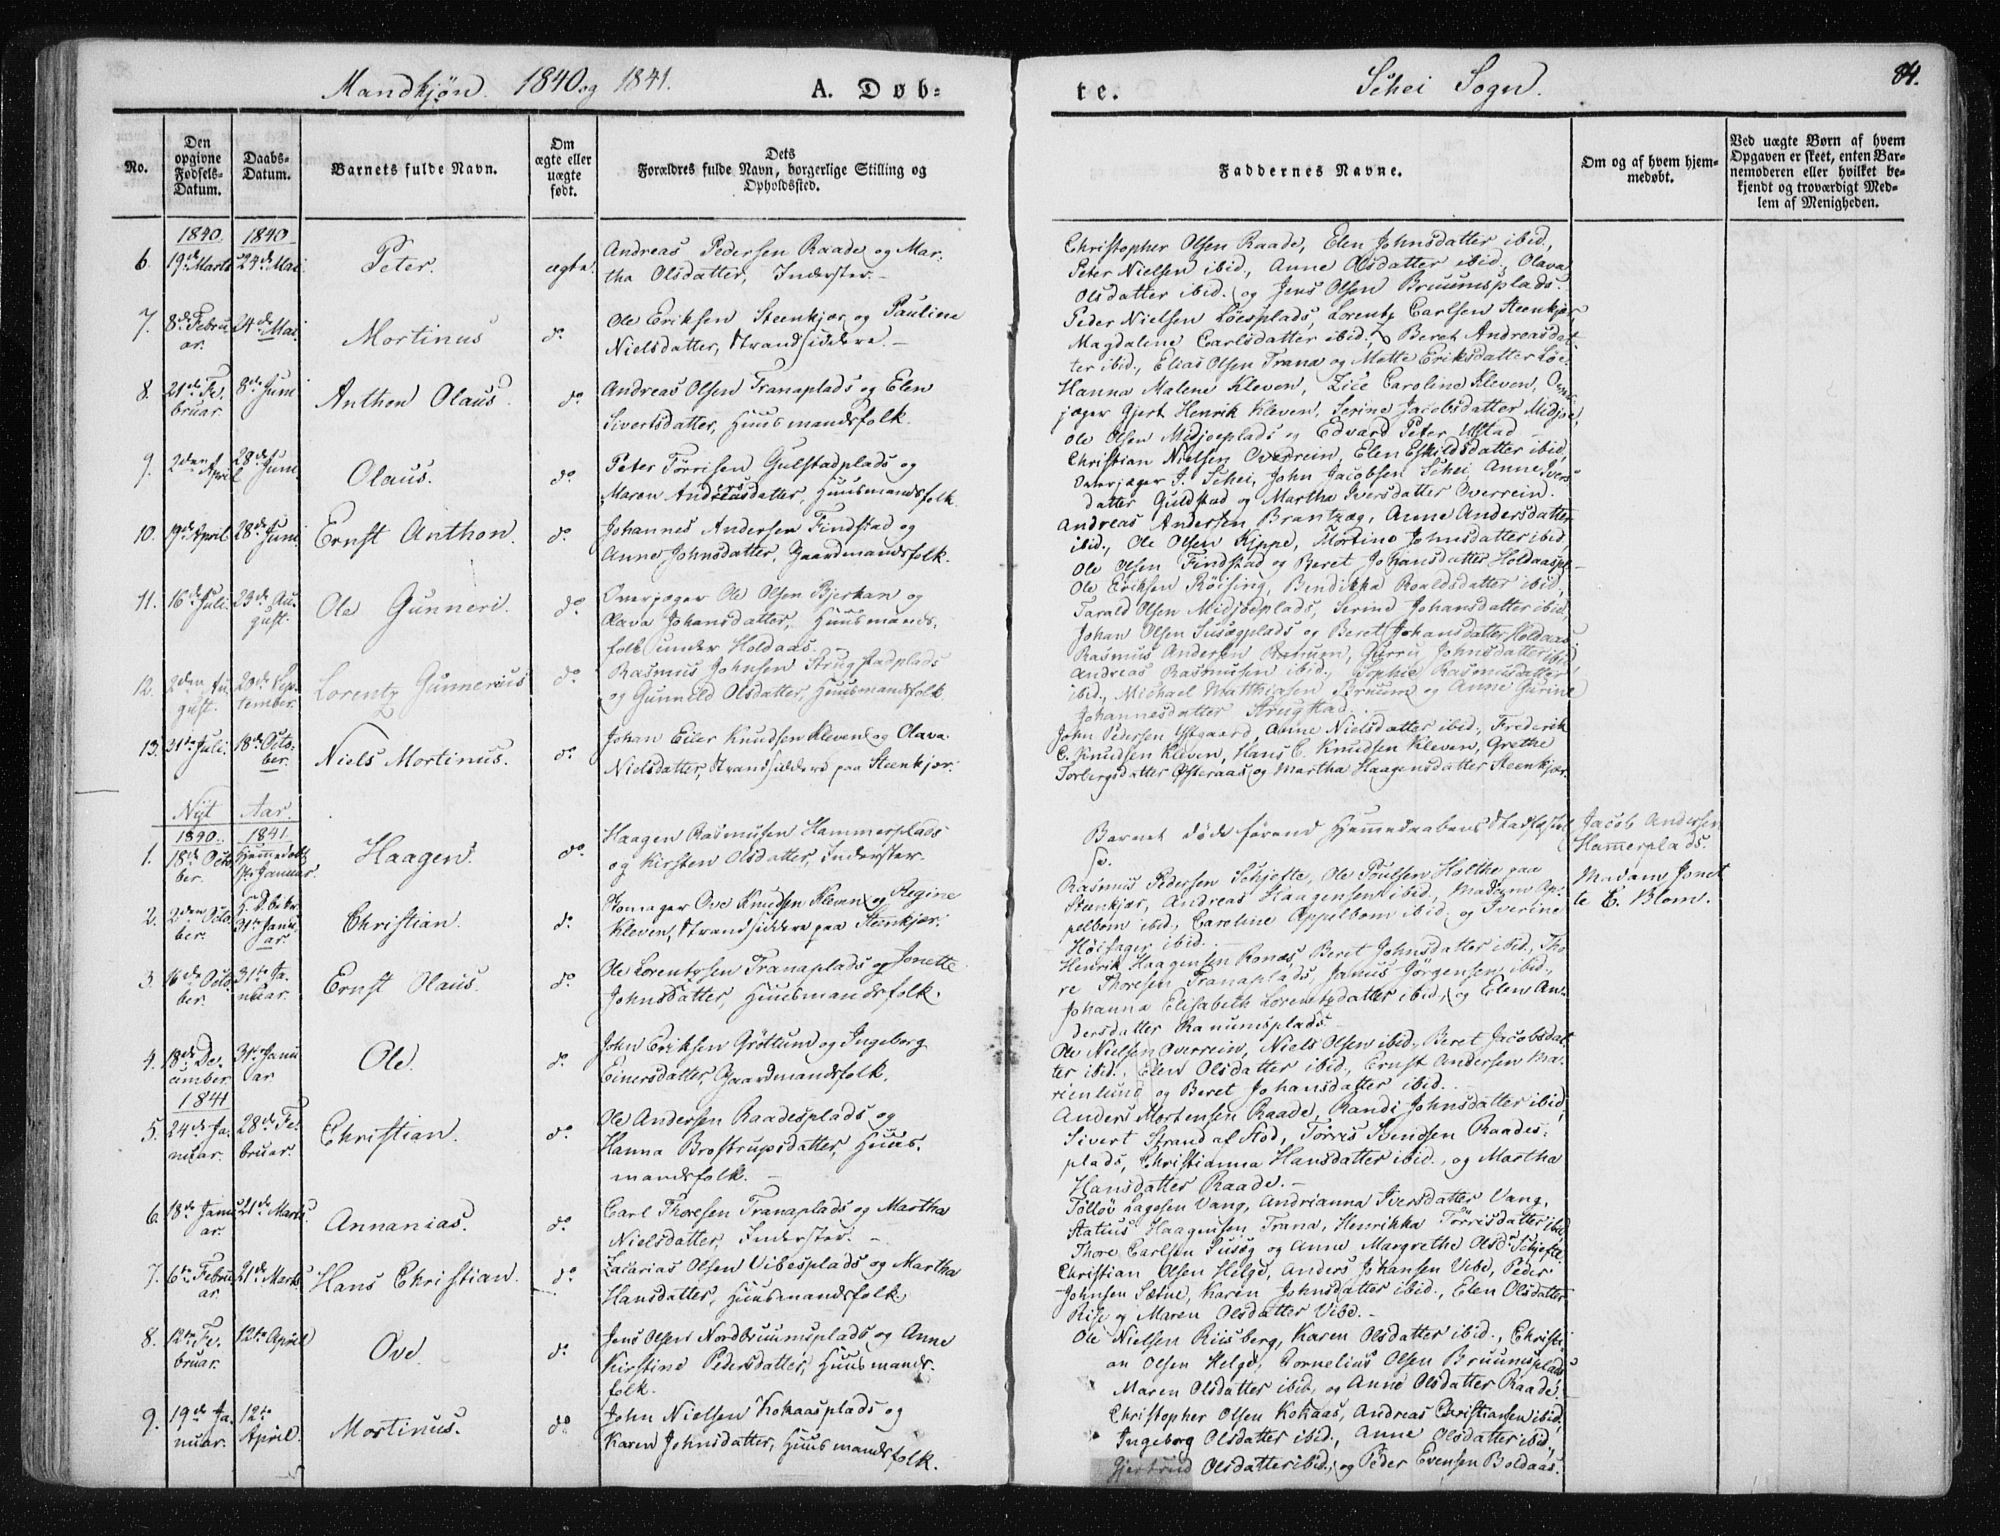 Mandkjøn. 1840 og 1841.
A. Døb-
te.
Schei Sogn.
84.
No.
Den opgivne Fødsels-Datum.
Daabs-Datum.
Barnets fulde Navn.
Om ægte eller uægte født.
Dets Forældres fulde Navn, borgerlige Stilling og Opholdssted.
Faddernes Navne.
Om og af hvem hjemmedøbt.
Ved uægte Børn af hvem
Opgaven er skeet, enten Bar-
nemoderen eller hvilket be-
kjendt og troværdigt Med-
lem af Menigheden.
1840. 1840
6. 19de Marts 24de Mai Peter. ægte.
Andreas Pedersen Raade og Mar-
tha Olsdatter, Inderster.
Christopher Olsen Raade, Elen Johnsdatter ibid.,
Peter Nielsen ibid., Anne Olsdatter ibid., Olava
Olsdatter ibid. og Jens Olsen Bruumsplads.
7. 8de Febru-
ar. 24de Mai. Mortinus do
Ole Eriksen Steenkjær og Pauline
Nielsdatter, Strandsiddere.
Peder Nielsen Löesplads, Lorentz Carlsen Steenkjær
Magdalene Carlsdatter ibid., Beret Andreasdat-
ter ibid., Elias Olsen Trana og Mette Eriksdatter Löe.
8. 21de Fe-
bruar. 8de Juni Anthon Olaus. do
Andreas Olsen Tranaplads og Elen
Sivertsdatter, Huusmandsfolk.
Hanna Malene Kleven, Zice Caroline Kleven, Over-
jæger Gjert Henrik Kleven, Serine Jacobsdatter Midjoe,
Ole Olsen Midjoeplads og Edvard Peter Ulstad
9. 2den April 28de Juni. Olaus. do
Peter Törrisen Gulstadplads og
Maren Andersdatter, Huusmandsfolk.
Christian Nielsen Overrein, Elen Eskildsdatter ibid,
Overjæger J. Schei, John Jacobsen Schei Anne Ivers-
datter Guldstad og Martha Iversdatter Overrein.
10. 19de April 28de Juni Ernst Anthon. do
Johannes Andersen Findstad og
Anne Johnsdatter, Gaardmandsfolk.
Andreas Andersen Brantzæg, Anne Andersdatter
ibid., Ole Olsen Kippe, Mortine Johnsdatter ibid.
Ole Olsen Findstad og Beret Johansdatter Holdaaspl-
11. 16de Juli. 23de Au-
gust. Ole Gunneri. do
Overjæger Ole Olsen Bjerkan og
Olava Johansdatter, Huusmands-
folk under Holdaas.
Ole Eriksen Röising, Bendikka Roaldsdatter ibid,
Tarald Olsen Midjoeplads, Serine Johansdatter ibid,
Johan Olsen Susægplads og Beret Johansdatter Holdaas
12. 2den Au-
gust. 20de Sep-
tember. Lorentz Gunnerius do
Rasmus Johnsen Strugstadplads
og Gunneld Olsdatter, Huusmandsfolk
Rasmus Andersen Bruum, Gurru Johnsdatter ibid
Andreas Rasmusen ibid., Sophie Rasmusdatter
ibid., Michael Matthiasen Bruum og Anne Gurine
Johannesdatter Strugstad.
13. 21de Juli. 18de Octo-
ber. Niels Mortinus. do
Johan Eiler Knudsen Kleven og Olava
Nielsdatter, Strandsiddere paa Steenkjær.
John Pedersen Ystgaard, Anne Nielsdatter ibid., Frederik
C. Knudsen Kleven, Hans C. Knudsen Kleven, Grethe
Torbergsdatter Østeraas og Martha Haagensdatter Steenkjær.
Nyt Aar.
1840. 1841.
1. 18de Octo-
ber. Hjemmedøbt
Januar. Haagen. do
Haagen Rasmusen Hammerplads
og Kirsten Olsdatter, Inderster.
Barnet döde förend Hjemmedaabens Stadfæstel-
se.
Jacob Andersen
Hamerplads.
2. 2den Octo-
ber. 31te Janu-
ar. Christian. do
Ove Knudsen Kleven og Regine
Kleven, Strandsiddere paa Steenkjær.
Rasmus Pedersen Schjefte, Ole Poulsen Holthe paa
Steenkjær, Andreas Haagensen ibid, Madam Ap-
pelbom ibid, Caroline Appelbom ibid, og Iverine
Höifager ibid.
Madam Jonet-
te E. Blom.
3. 16de Octo-
ber. 31te Ja-
nuar. Ernst Olaus. do
Ole Lorentzsen Tranaplads og Jonette
Johnsdatter, Huusmandsfolk.
Henrik Haagensen Ronæs, Beret Johnsdatter ibid., Tho-
re Thoresen Tranaplads, Janus Jörgensen ibid.,
Johanna Elisabeth Lorentzdatter ibid., og Elen An-
dersdatter Ranumsplads
4. 18de De-
cember. 31te Janu-
ar Ole. do
John Eriksen Gröttum og Ingeborg
Einersdatter, Gaardmandsfolk.
Ole Nielsen Overrein, Niels Olsen ibid., Beret Jacobsdat-
ter ibid., Elen Olsdatter ibid., Ernst Andersen Ma-
rienlund og Beret Johansdatter ibid.
1841
5. 24de Ja-
nuar. 28de Fe-
bruar. Christian. do
Ole Andersen Raadesplads og
Hanna Brostrupsdatter, Huus-
mandsfolk.
Anders Mortensen Raade, Randi Johnsdatter ibid,
Sivert Strand af Stod, Törris Svendsen Raades-
plads, Christianna Hansdatter ibid., og Martha
Hansdatter Raade.
6. 18de Janu-
ar. 21de Marts. Annanias. do
Carl Thoresen Tranaplads og Martha
Nielsdatter, Inderster.
Tölløv Lagesen Vang, Andrianna Iversdatter Vang,
Statius Haagensen Trana, Henrikka Törrisdatter ibid
Thore Carlsen Susæg og Anne Margrethe Olsd. Schjefte
7. 6te Febru-
ar 21de Marts Hans Christian. do
Zacarias Olsen Vibesplads og Martha
Hansdatter, Huusmandsfolk.
Christian Olsen Helge, Anders Johansen Vibe, Peder
Johnsen Sætne, Karen Johnsdatter ibid., Elen Olsdatter
Rise og Maren Olsdatter Vibe.
8. 12te Fe-
bruar. 12te April Ove. do
Jens Olsen Nordbruumsplads og Anne
Kirstine Pedersdatter, Huusmands-
folk.
Ole Nielsen Riisberg, Karen Olsdatter ibid., Christi-
an Olsen Helge, Cornelius Olsen Bruumsplads
Maren Olsdatter ibid, og Anne Olsdatter Raade.
9. 19de Ja-
nuar. 12te
April. Mortinus. do
John Nielsen Kokaasplads og
Karen Johnsdatter, Huusmandsfolk.
Christopher Olsen Kokaas, Andreas Christiansen ibid,
Ingeborg Olsdatter ibid., Anne Olsdatter ibid.,
Gjertrud Olsdatter ibid., og Peder Evensen Boldaas.